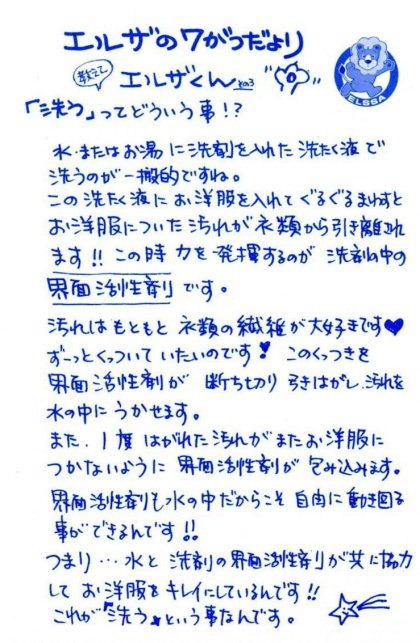 エルザの7がつだより
教えて
エルザくん no.3
ELSSA
「洗う」ってどういう事!?
水・またはお湯に洗剤を入れた洗たく液で
洗うのが一搬的ですね。
この洗たく液にお洋服を入れてぐるぐるまわすと
お洋服についた汚れが衣類から引き離され
ます!! この時力を発揮するのが洗剤の中の
界面活性剤です。
汚れはもともと衣類の繊維が大好きです♥
ずーっとくっついていたいのです! このくっつきを
界面活性剤が断ち切り引きはがし、汚れを
水の中にうかせます。
また、1度はがれた汚れがまたお洋服に
つかないように界面活性剤が包み込みます。
界面活性剤も水の中だからこそ自由に動き回る
事ができるんです!!
つまり…水と洗剤の界面活性剤が共に協力
してお洋服をキレイにしているんです!!
これが「洗う」という事なんです。